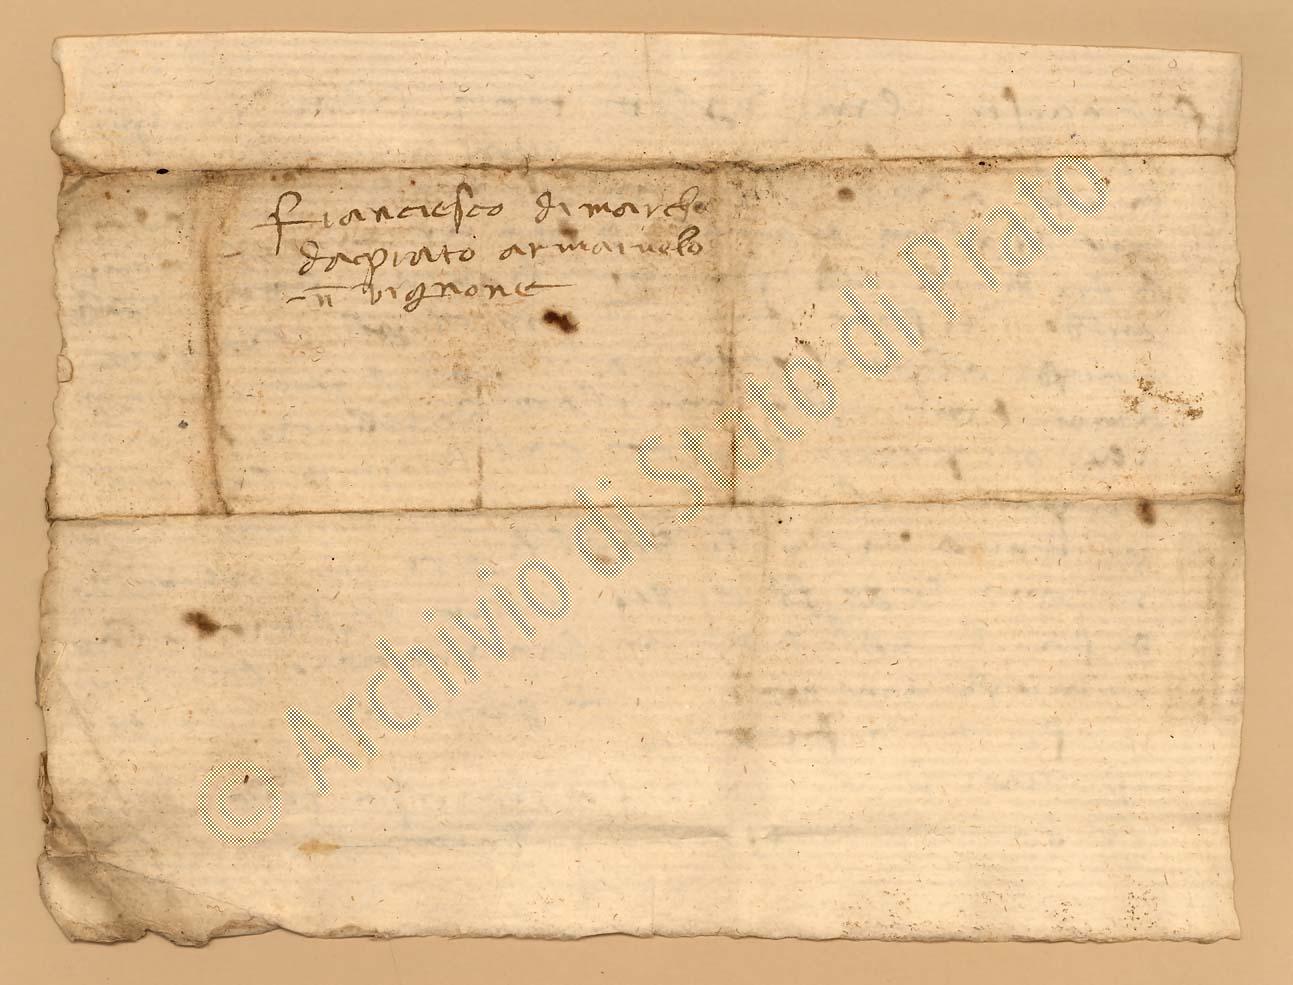 Franciesco di March
da prato armaruolo
in vignone
© Archivio di Stato di Prato